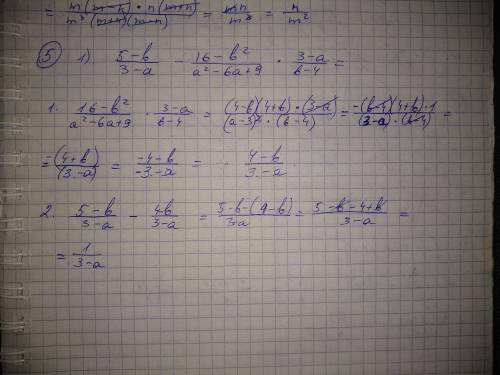 = m(m-n) · n(m+n) / m³(m+n)(m-n) = mn / m³ = n / m²
5 1) 5-b / 3-a - 16-b² / a²-6a+9 · 3-a / b-4 =
1. 16-b² / a²-6a+9 · 3-a / b-4 = (4-b)(4+b)·(3-a) / (a-3)²·(b-4) = -(b-4)(4+b)·1 / (3-a)·(b-4) =
= -(4+b) / (3-a) = -4-b / -3-a = 4-b / 3-a
2. 5-b / 3-a - 4-b / 3-a = 5-b-(4-b) / 3-a = 5-b-4+b / 3-a =
= 1 / 3-a